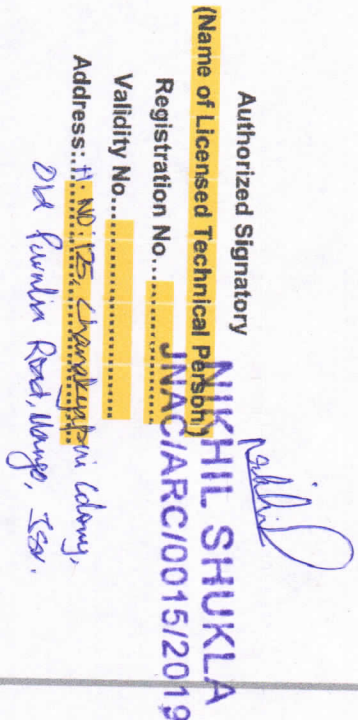 Authorized Signatory
Nikhil
(Name of Licensed Technical Person)
NIKHIL SHUKLA
Registration No................
JNAC/ARC/0015/2019
Validity No........................
Address:.H. NO: 125, Colony,
Old Purulia Road, Mango, Jsr.